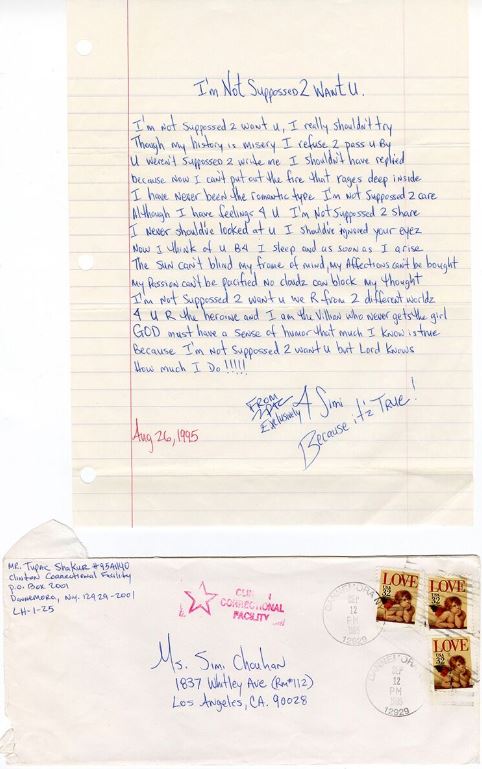 I'm Not Supposed 2 Want U.
I'm not supposed 2 want u, I really shouldn't try
Though my history is misery I refuse 2 pass u By
U weren't supposed 2 write me I shouldn't have replied
Because now I can't put out the fire that rages deep inside
I have never been the romantic type I'm not supposed 2 care
Although I have feelings 4 U I'm Not Supposed 2 share
I never should've looked at u I should've ignored your eyez
Now I think of u B4 I sleep and as soon as I arise
The sun can't blind my frame of mind, my Affections can't be bought
my Passion can't be pacified No cloudz can block my thought
I'm not Supposed 2 want u we R from 2 different worldz
4 U R the heroine and I am the Villian who never gets the girl
GOD must have a sense of humor that much I know is true
Because I'm not supposed 2 want u but Lord knows
How much I Do !!!!!
FROM
2PAC
Exclusively 4 Simi
Because it'z TRUE!
Aug 26, 1995
MR. Tupac Shakur #95A1140
Clinton Correctional Facility
P.O. Box 2001
Dannemora, N.Y. 12929-2001
LH-1-25
CORRECTIONAL
FACILITY
DANNEMORA NY
SEP
12
PM
1995
12929
DANNEMORA
SEP
12
PM
1995
12929
LOVE
USA
32
LOVE
USA
32
LOVE
USA
32
Ms. Simi Chouhan
1837 Whitley Ave (Rm#112)
Los Angeles, CA. 90028